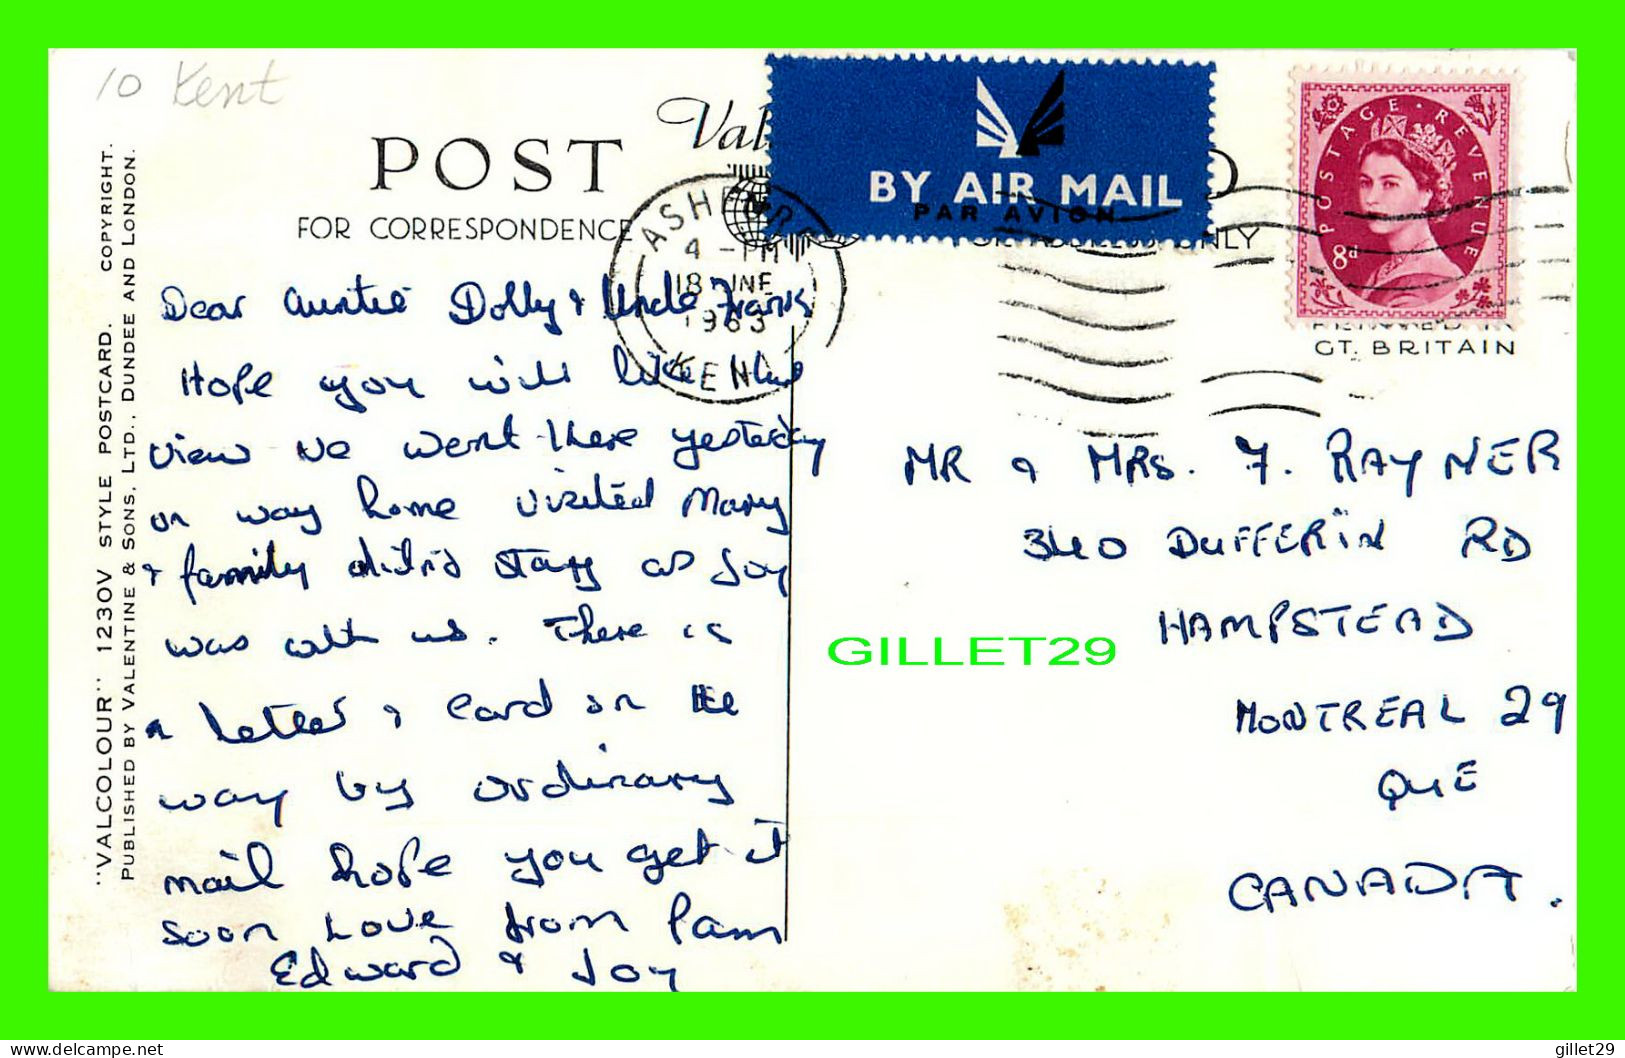 10 Kent
POST
Val
FOR CORRESPONDENCE
BY AIR MAIL
PAR AVION
POSTAGE REVENUE
8d
GT. BRITAIN
ASHFORD
4 - PM
18 JNE
1963
KENT
"VALCOLOUR" 1230V STYLE POSTCARD. COPYRIGHT.
PUBLISHED BY VALENTINE & SONS, LTD., DUNDEE AND LONDON.
Dear Auntie Dolly & Uncle Frank
Hope you will like this
view we went there yesterday
on way home visited Mary
& family didn't stay as Joy
was with us. There is
a letter & card on the
way by ordinary
mail hope you get it
soon Love from Pam
Edward & Joy
MR & MRS. F. RAYNER
340 DUFFERIN RD
HAMPSTEAD
MONTREAL 29
QUE
CANADA.
GILLET29
delcampe.net
gillet29